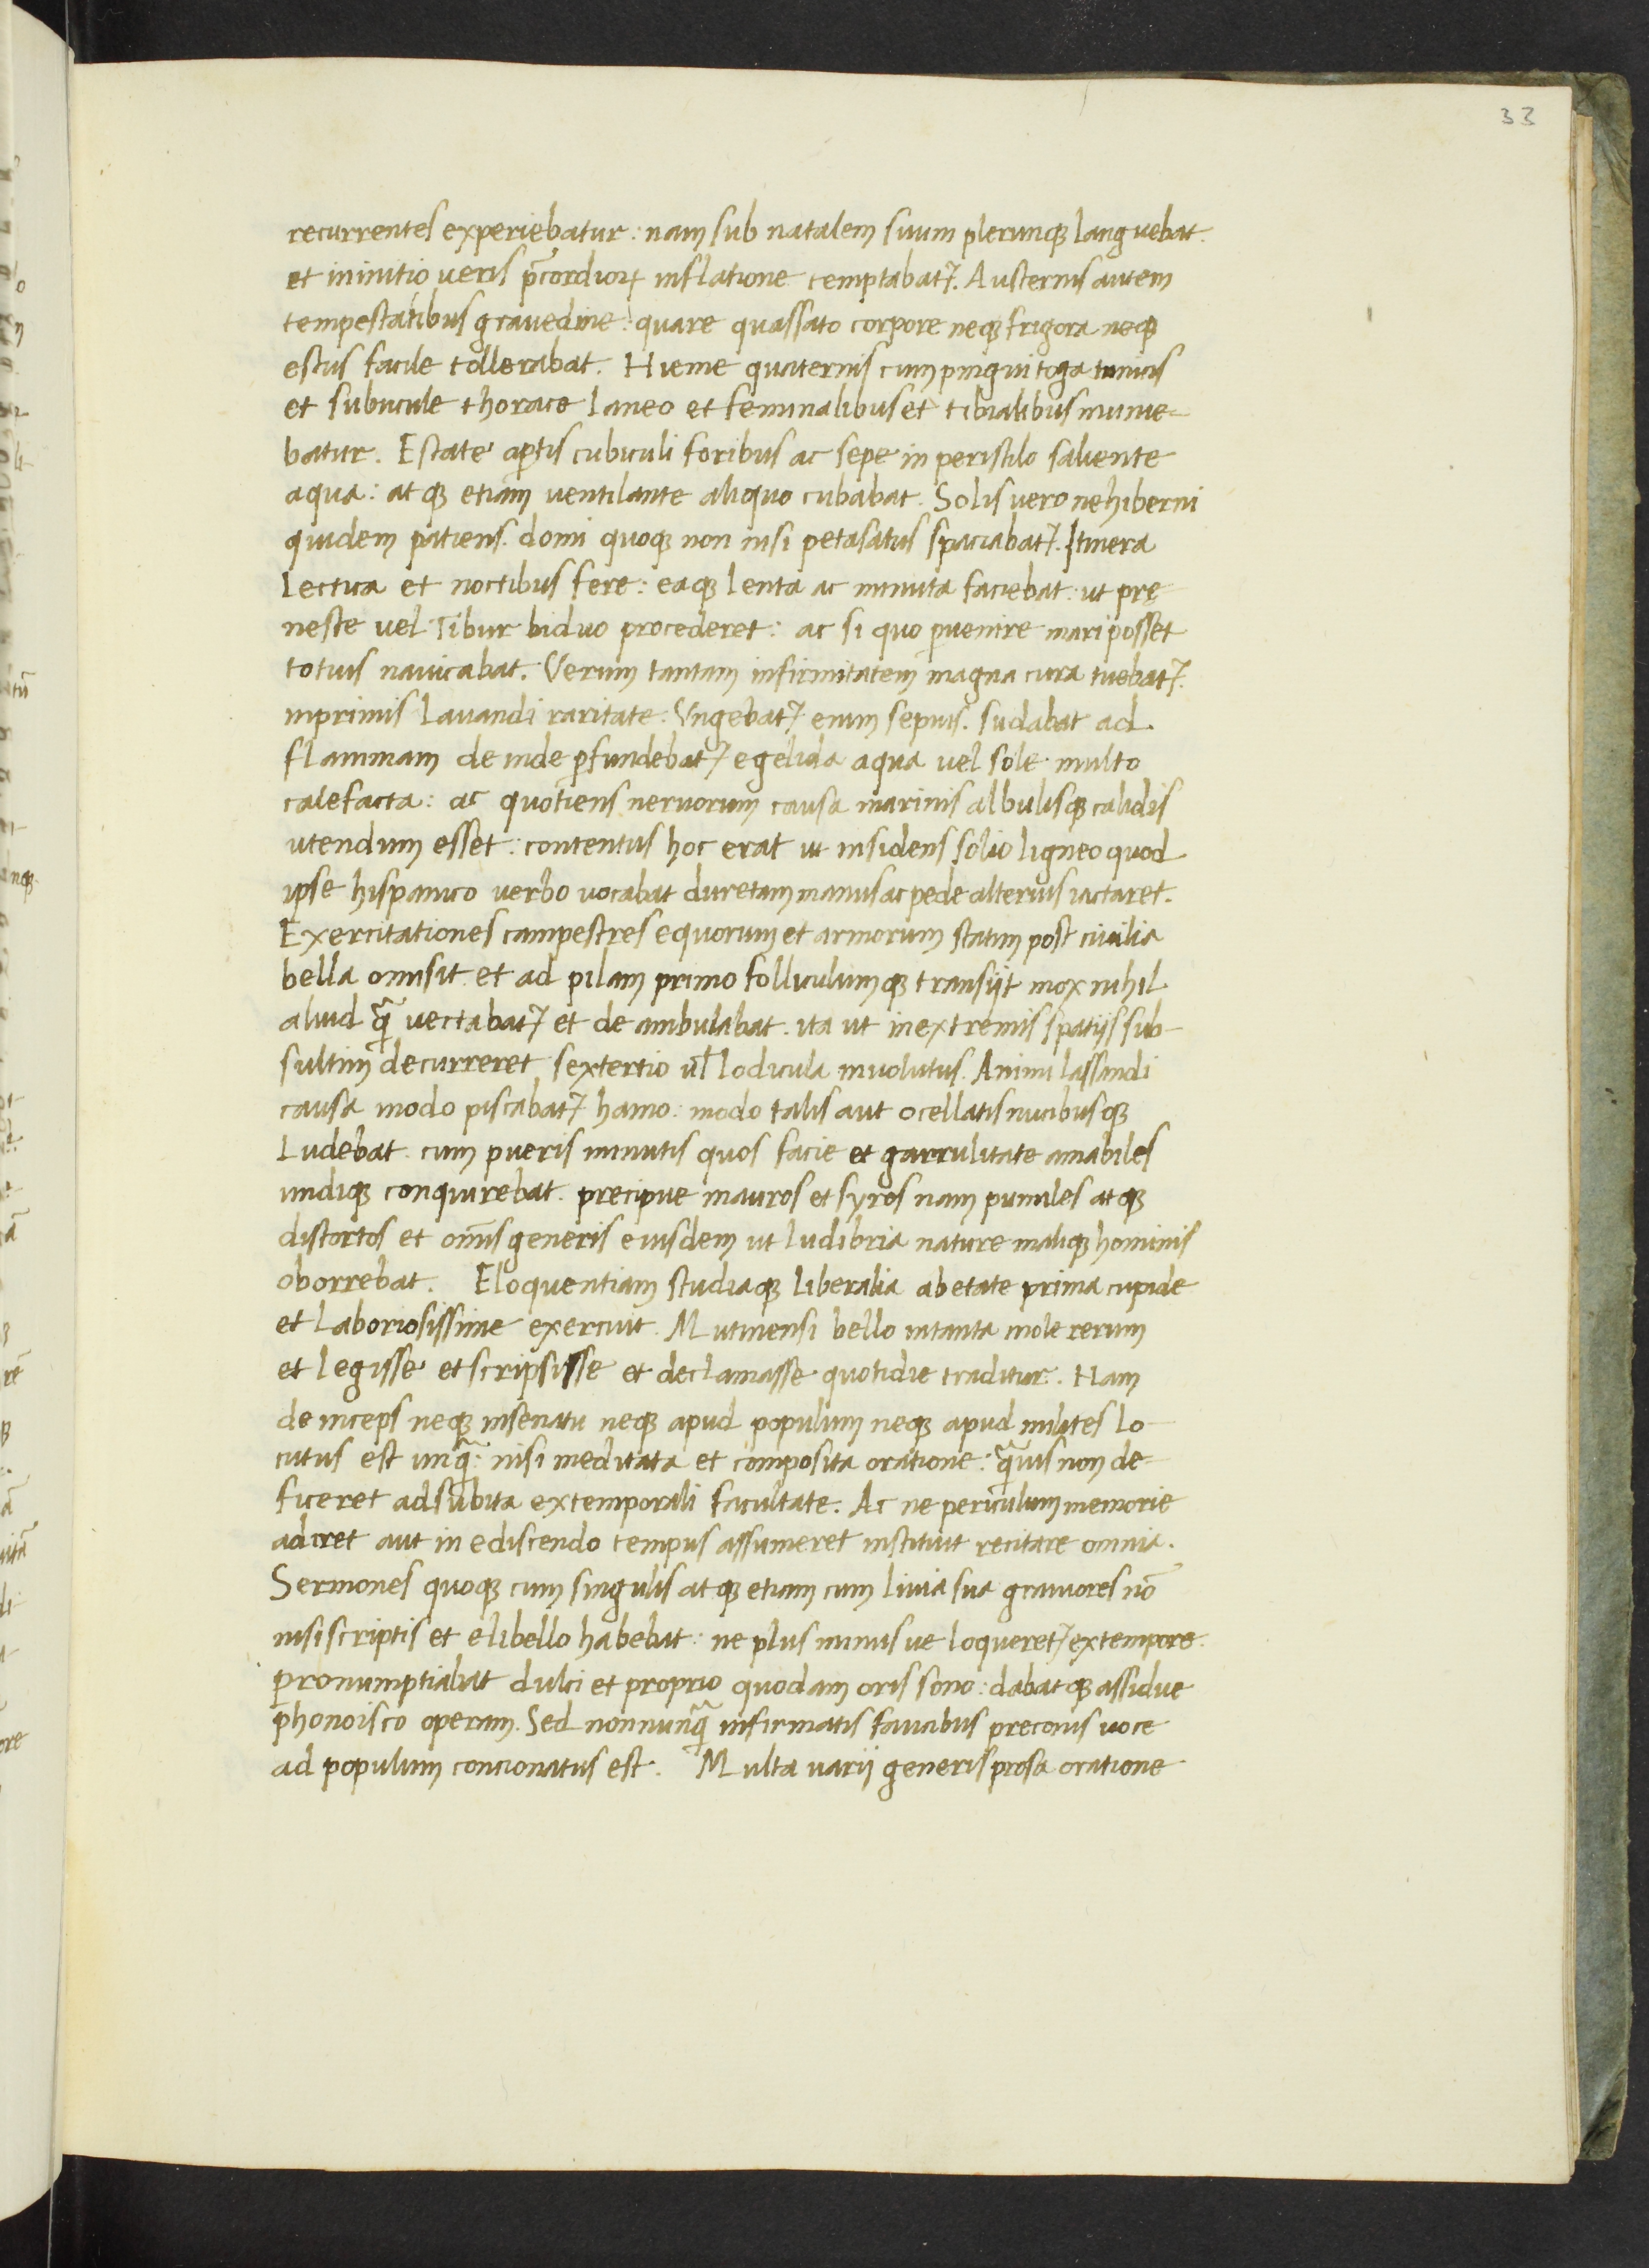 33
recurrentes experiebatur: nam sub natalem suum plerunqꝫ languebat.
et in initio ueris p̄cordioꝝ inflatione temptabatꝰ. Austernis autem
tempestatibus grauedine: quare quassato corpore neqꝫ frigora neqꝫ
estus facile tollerabat. Hieme quaternis cum pingui toga tunicis
et subucule thorace laneo et feminalibus et tibialibus munie-
batur. Estate ap̱tis cubiculi foribus ac sepe in peristilo saliente
aqua: atqꝫ etiam uentilante aliquo cubabat. Solis uero ne hiberni
quidem patiens. domi quoqꝫ non nisi petasatus spaciabatꝰ. Itinera
lectica et noctibus fere: eaqꝫ lenta ac minuta faciebat: ut pre
neste uel Tibur biduo procederet: ac si quo ꝑuenire mari posset
totius nauicabat. Verum tantam infirmitatem magna cura tuebatꝰ.
inprimis lauandi raritate: Vngebatꝰ enim sepius. sudabat ad
flammam deinde ꝑfundebatꝰ egelida aqua uel sole multo
calefacta: ac quotiens neruorum causa marinis albulisqꝫ calidis
utendum esset: contentus hoc erat ut insidens solio ligneo quod
ipse hispanico uerbo uocabat duretam manus ac pede alterius iactaret.
Exercitationes campestres equorum et armorum statim post ciuilia
bella omisit. et ad pilam primo folliculumqꝫ transijt mox nihil
aliud q̄ uectabatꝰ et deambulabat. ita ut in extremis spatijs sub-
sultim decurreret sextertio ul̄ lodicula inuolutus. Animi lassandi
causa modo piscabatꝰ hamo: modo talis aut ocellatis nucibusqꝫ
ludebat. cum pueris minutis quos facie et garrulitate amabiles
undiqꝫ conquirebat. precipue mauros et syros nam pumiles atqꝫ
distortos et om̄s generis eiusdem ut ludibria nature maliqꝫ hominis
oborrebat. Eloquentiam studiaqꝫ liberalia ab etate prima cupide
et laboriosissime exercuit. Mutinensi bello in tanta mole rerum
et legisse et scripsisse et declamasse quotidie traditur. Nam
deinceps neqꝫ in senatu neqꝫ apud populum neqꝫ apud milites lo-
cutus est unq̄: nisi meditata et composita oratione: q̄uis non de-
ficeret ad subita extemporali facultate. Ac ne periculum memorie
adiret aut in ediscendo tempus assumeret instituit recitare omnia.
Sermones quoqꝫ cum singulis atqꝫ etiam cum liuia sua grauiores nō
nisi scriptis et e libello habebat: ne plus minus ue loqueretꝰ extempore.
pronumptiabat dulci et proprio quodam oris sono: dabatqꝫ assidue
phonoisco operam. Sed nonnunq̄ infirmatis faucibus preconis uoce
ad populum concionatus est. Multa uarij generis prosa oratione